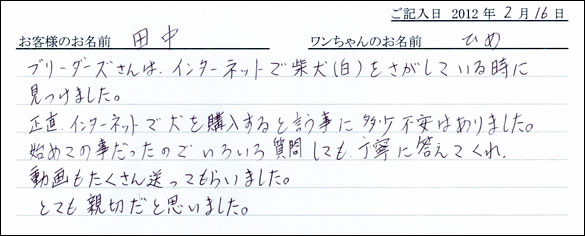 ご記入日 2012年2月16日
お客様のお名前 田中 ワンちゃんのお名前 ひめ
ブリーダーズさんは、インターネットで柴犬(白)をさがしている時に
見つけました。
正直、インターネットで犬を購入すると言う事に多少不安はありました。
始めての事だったのでいろいろ質問しても、丁寧に答えてくれ、
動画もたくさん送ってもらいました。
とても親切だと思いました。